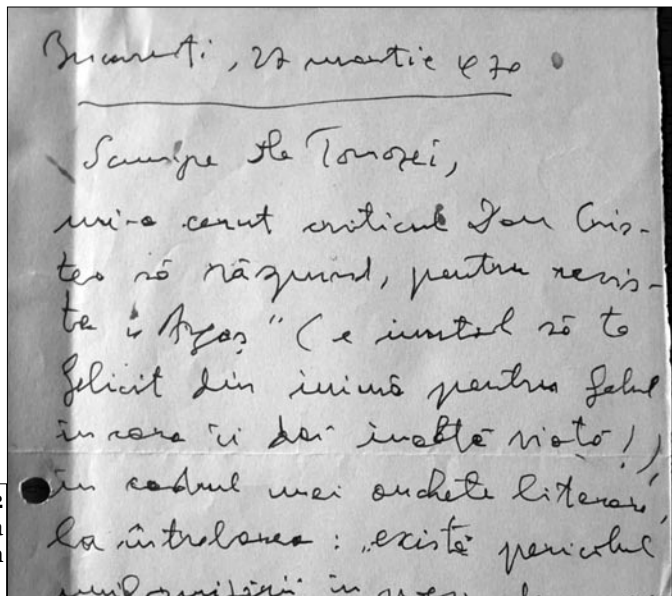 București, 27 martie 970
Scumpe Gh Tomozei,
mi-a cerut criticul Dan Cris-
tea să răspund, pentru revis-
ta „Argeș” (e inutil să te
felicit din inimă pentru felul
în care îi dai înaltă viață!),
în cadrul unei anchete literare,
la întrebarea: „există pericolul
uniformizării în